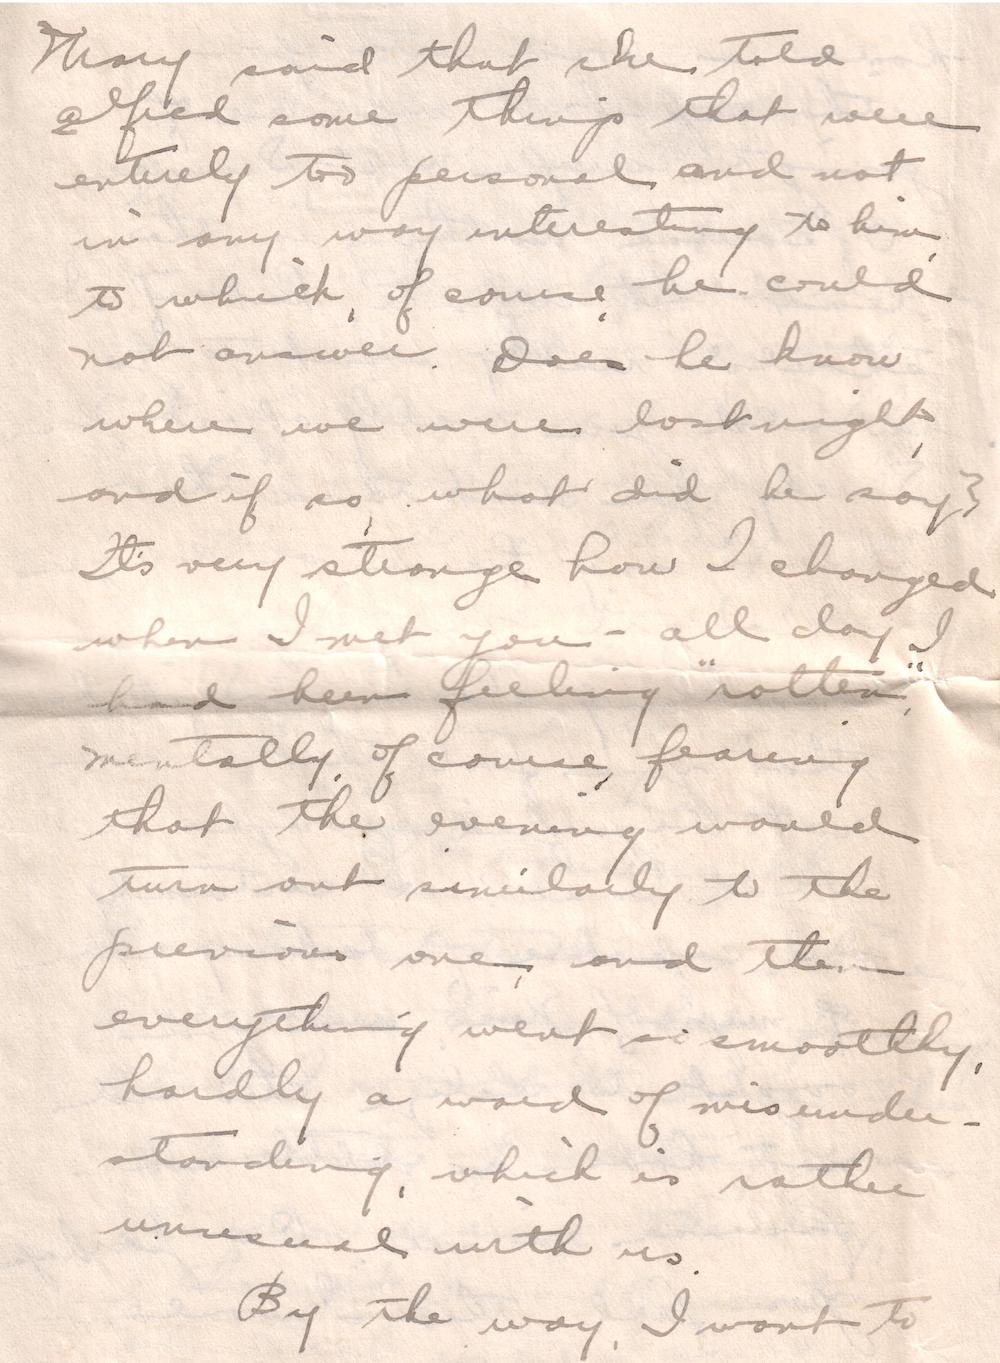 Mary said that she told
Alfred some things that were
entirely too personal and not
in any way interesting to him,
to which, of course, he could
not answer. Does he know
where we were last night,
and if so, what did he say?
It's very strange how I changed
when I met you – all day I
had been feeling "rotten",
mentally, of course, fearing
that the evening would
turn out similarly to the
previous one, and then
everything went so smoothly,
hardly a word of misunder-
standing, which is rather
unusual with us.
By the way, I want to